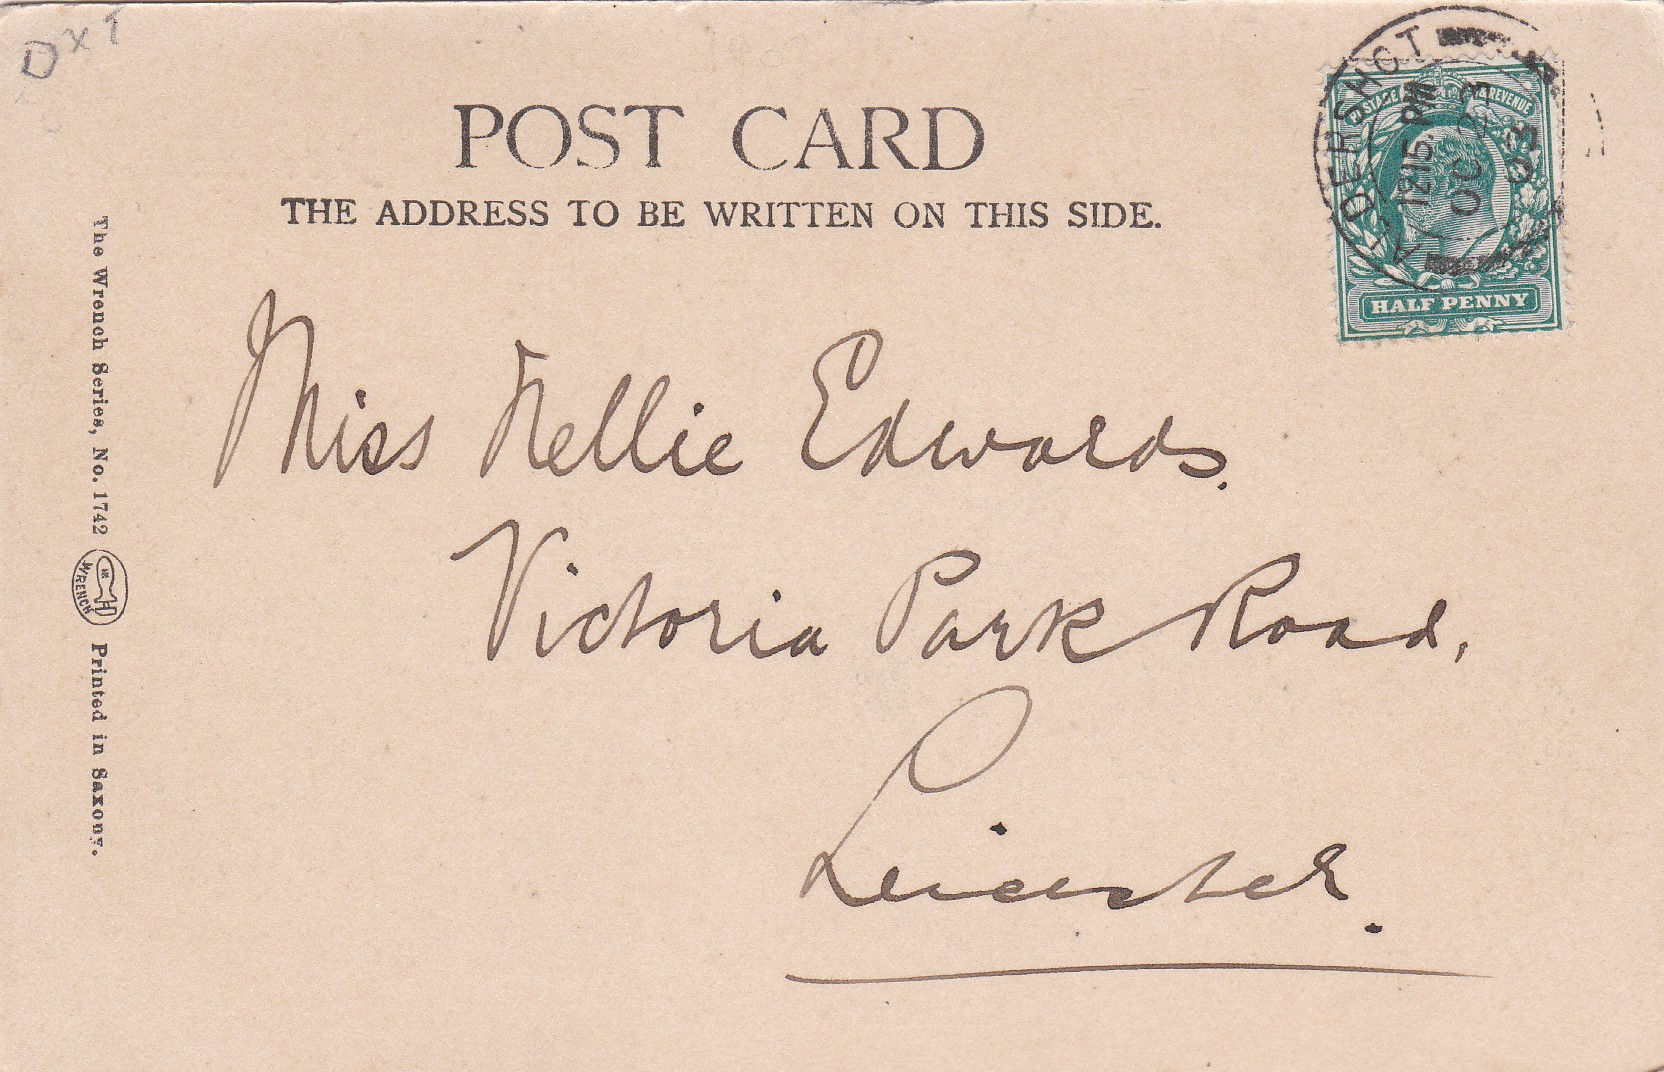 D x 1
POST CARD
THE ADDRESS TO BE WRITTEN ON THIS SIDE.
POSTAGE REVENUE
HALF PENNY
ALDERSHOT
12.15 PM
OC 23
03
Miss Nellie Edwards.
Victoria Park Road,
Leicester.
The Wrench Series, No. 1742
WRENCH
Printed in Saxony.